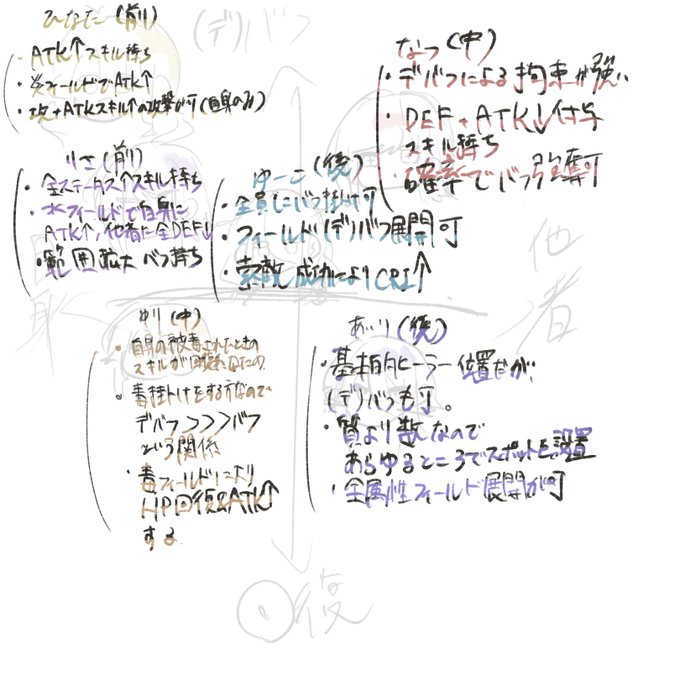 ひなた(前)
・ATK↑スキル持ち
・炎フィールドでATK↑
・攻+ATKスキル↑の攻撃が可(自身のみ)
(デ)バフ
なつ(中)
・デバフによる拘束が強い
・DEF+ATK↓付与
スキル持ち
・確率でバフ強奪可
りさ(前)
・全ステータス↑スキル持ち
・水フィールドで自身に
ATK↑/他者に全DEF↓
・範囲拡大バフ持ち
ゆーこ(後)
・全員にバフ掛け可
・フィールド(デ)バフ展開可
・索敵成功によりCRI↑
他者
ゆり(中)
・自身の被毒されたときの
スキルが
・毒掛けをする方なので
デバフ>>>バフ
という関係
・毒フィールドにより
HP回復&ATK↑
する
あいり(後)
・基本的ヒーラー位置だが、
(デ)バフも可。
・質より数なので
あらゆるところでスポットを設置
・全属性フィールド展開が可
回復